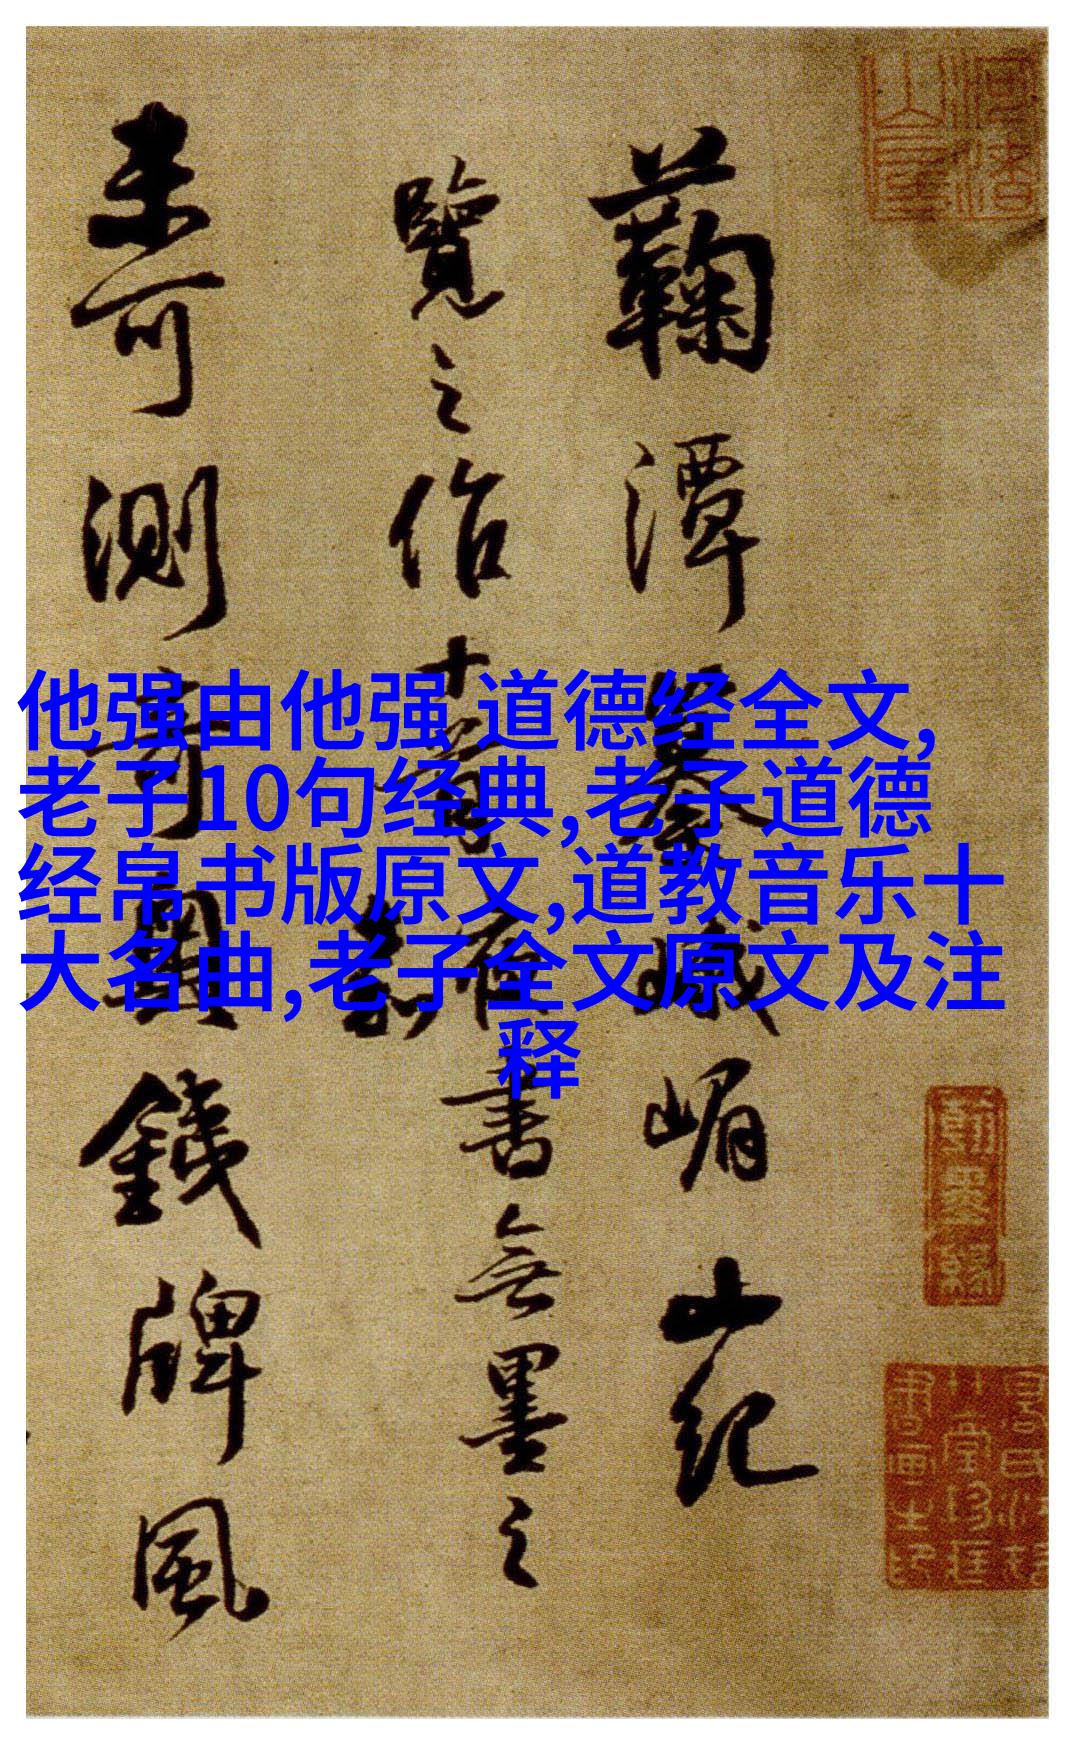 他强由他强 道德经全文,
老子10句经典,老子道德
经帛书版原文,道教音乐十
大名曲,老子全文原文及注
释
蘜潭峨嵋山紀
覽之作十首書無墨之
可測奇興錢牌風